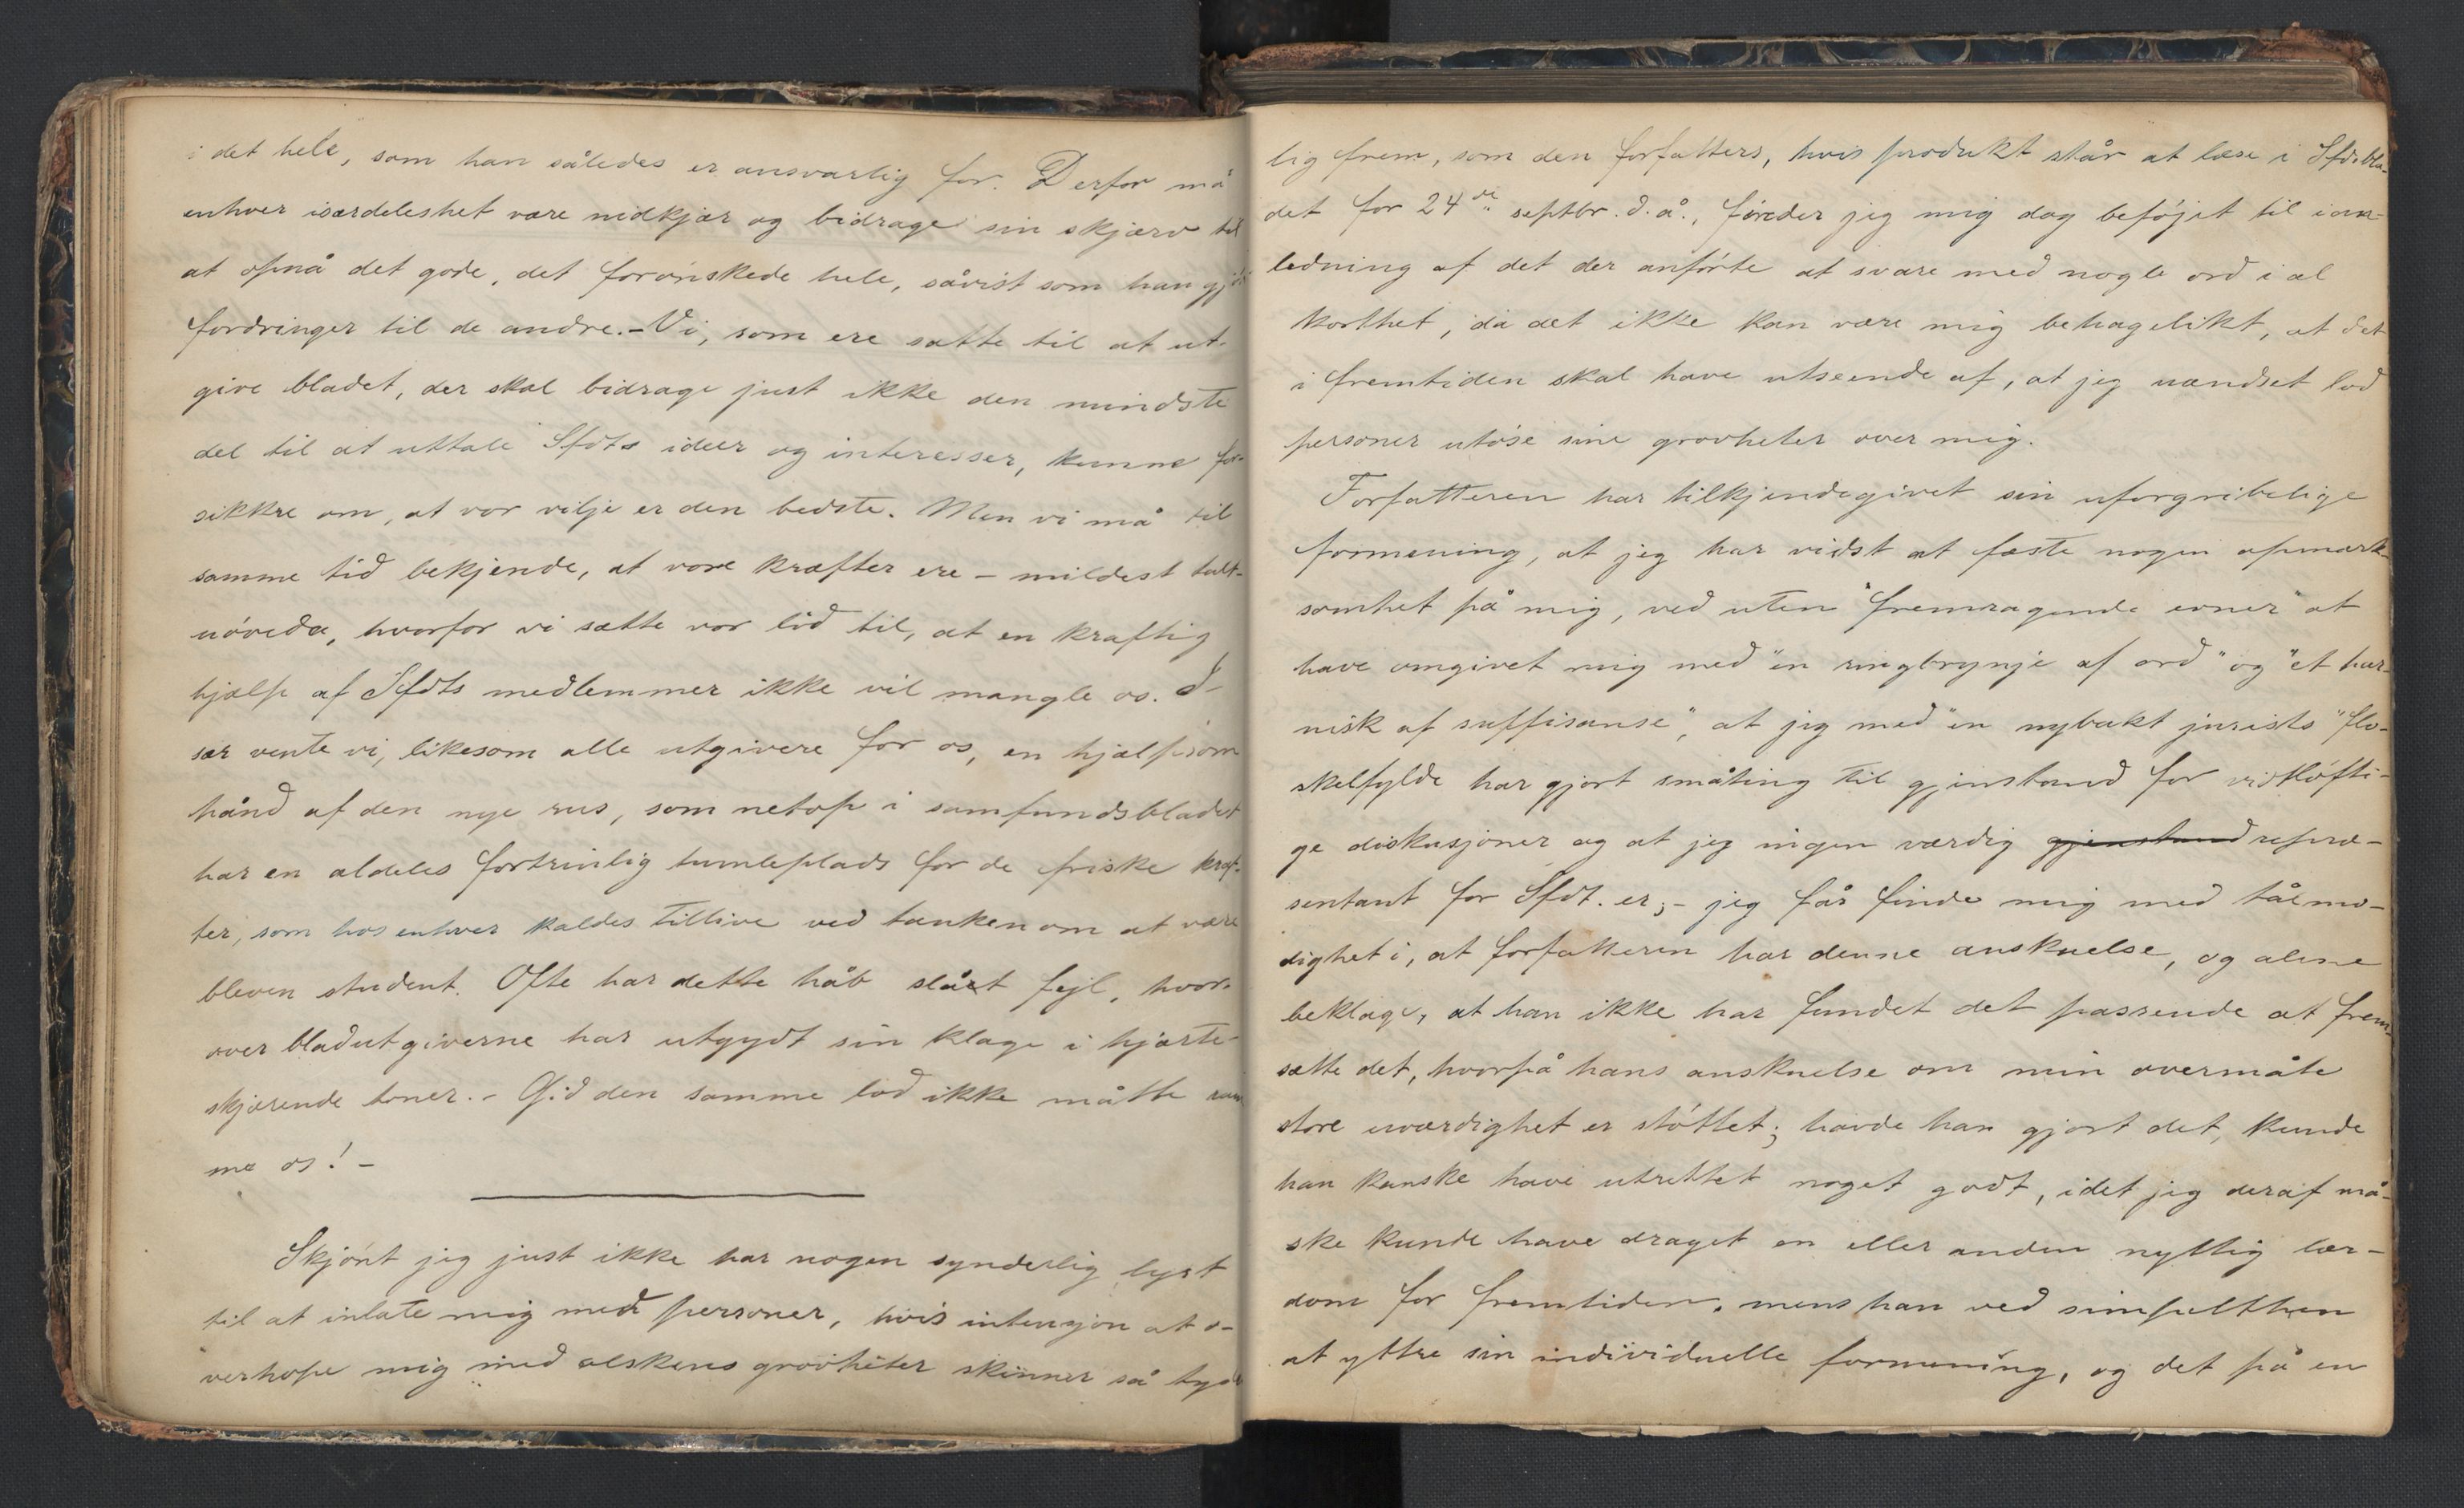 i det hele, som han således er ansvarlig for. Derfor må
enhver isærdeleshet være nidkjær og bidrage sin skjærv til
at opnå det gode, det forønskede hele, såvist som han gjør
fordringer til de andre. – Vi, som ere satte til at ut-
give bladet, der skal bidrage just ikke den mindste
del til at uttale Sfdts ideer og interesser, kunne for-
sikkre om, at vor vilje er den bedste. Men vi må til
samme tid bekjende, at vore kræfter ere – mildest talt –
uøvede, hvorfor vi sætte vor lid til, at en kraftig
hjælp af Sfdts medlemmer ikke vil mangle os. I-
sær vente vi, likesom alle utgivere før os, en hjælpsom
hånd af den nye rus, som netop i samfundsbladet
har en aldeles fortrinlig tumleplads for de friske kræf-
ter, som hos enhver kaldes tillive ved tanken om at være
bleven student. Ofte har dette håb slået fejl, hvor-
over bladutgiverne har utgydt sin klage i hjærte-
skjærende toner. – Gid den samme lod ikke måtte ram-
me os! –
Skjønt jeg just ikke har nogen synderlig lyst
til at inlate mig med personer, hvis intensjon at o-
verhope mig med alskens grovheter skinner så tyde-
lig frem, som den forfatters, hvis produkt står at læse i Sfdsbla-
det for 24de septbr. d.å., føreder jeg mig dog beføjet til i an-
ledning af det der anførte at svare med nogle ord i al
korthet, da det ikke kan være mig behagelikt, at det
i fremtiden skal have utseende af, at jeg uændset lod
personer utøse sine grovheter over mig.
Forfatteren har tilkjendegivet sin uforgribelige
formening, at jeg har vidst at fæste nogen opmærk-
somhet på mig, ved uten "fremragende evner" at
have omgivet mig med "en ringbrynje af ord" og "et har-
nisk af suffisanse", at jeg med "en nybakt jurists" flo-
skelfylde har gjort småting til gjenstand for vidtløfti-
ge diskusjoner og at jeg ingen værdig gjenstand repræ-
sentant for Sfdt. er; – jeg får finde mig med tålmo-
dighet i, at forfatteren har denne anskuelse, og alene
beklage, at han ikke har fundet det passende at frem-
sætte det, hvorpå hans anskuelse om min overmåte
store uværdighet er støttet; havde han gjort det, kunde
han kanske have utrettet noget godt, idet jeg deraf må-
ske kunde have draget en eller anden nyttig lær-
dom for fremtiden, mens han ved simpelthen
at yttre sin individuelle formening, og det på en